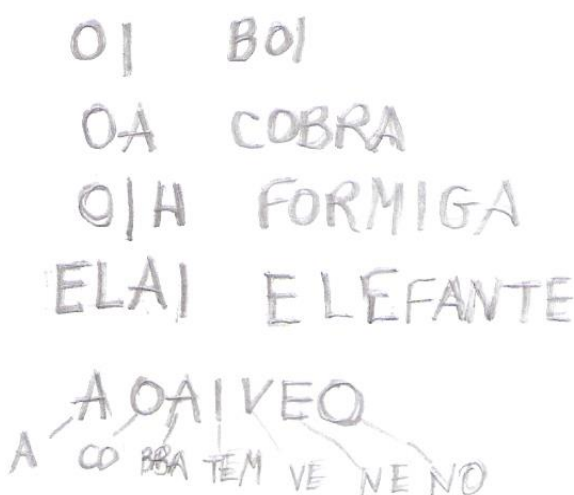 OI BOI
OA COBRA
OIH FORMIGA
ELAI ELEFANTE
AOAIVEO
A CO BBA TEM VE NE NO